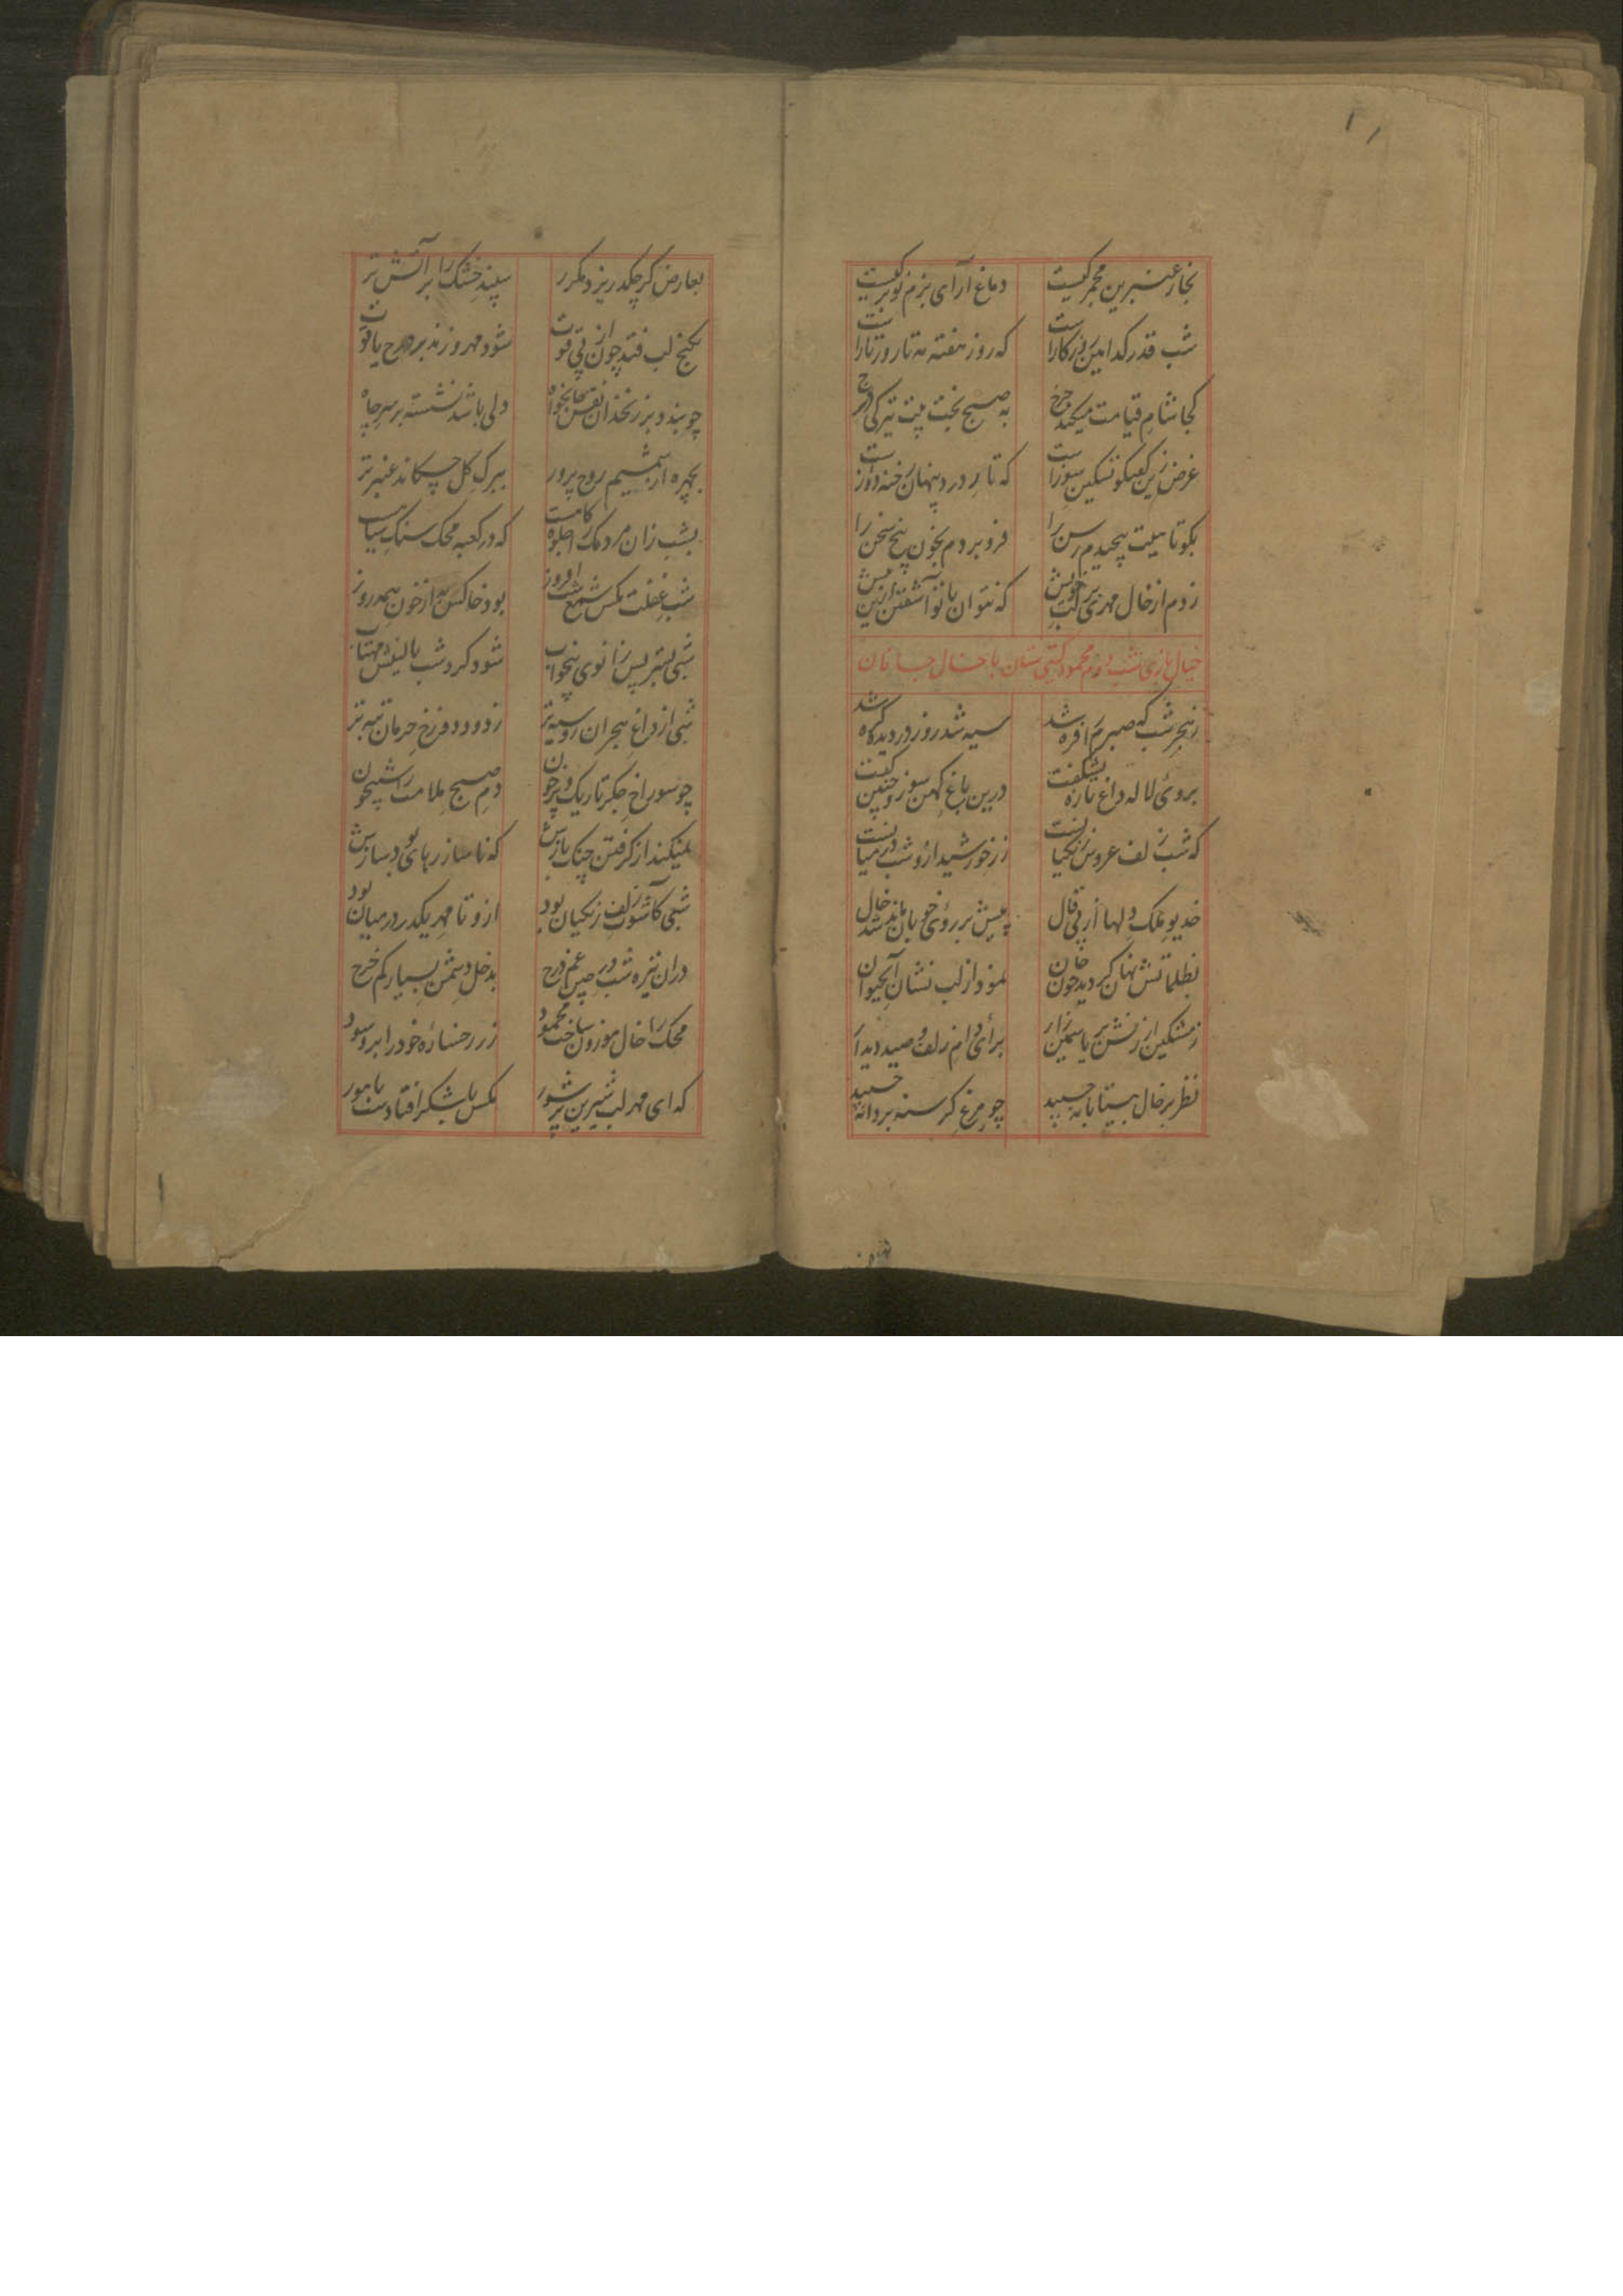 بخار عنبرین مجمر کیست
دماغ آرای بزم نوبر کیست
شب قدر کدامین روزکارست
که روز هفته مه تا روز تارست
کجا شام قیامت میکند چرخ
به صبح بخت تیرکی خرج
غرض زین کفتکو تسکین سوزست
که تا بر درد پنهان رخنه دوزست
بکوتاهیت پیچیدم رسن را
فرو بردم بخون پنج سخن را
زدم از خال مهری بر لب خویش
که نتوان با تو آشفتن ازین بیش
خیال بازی شب دوم محمود کیتی ستان با خال جانان
ز هجر شب که صبرم افره شد
سیه شد روز در دیده کره شد
بروی لاله داغ تازه بشکفت
درین باغ کهن سوز و چنین کفت
که شب زلف عروس زنکیانست
زر خورشید از و شب در میانست
خدیو ملک دلها از پی فال
پیش بر روی خوبان شد خال
بظلماتش نهان کردید چون جان
نمود از لب نشان آبحیوان
ز مشکین ارزنش بر یاسمین زار
برای دام زلف و صید دیدار
نظر بر خال بیتابانه چسپید
چو مرغ کرسنه بر دانه چسپید
بعارض کر چکد ریزد مکرر
سپند خشک را بر آتش تر
بکنج لب فتد چون از پی قوت
شود مهر و زند بر درج یاقوت
چو بیند در زنخدان نفس جانخواه
دلی باشد نشسته بر سر چاه
بچهره از شمیم روح پرور
ببرک کل چکاند عنبر تر
بشب زان مردمک را جلوه کاهست
که در کعبه محک سنک سیاهست
شب غفلت مکس شمع شب افروز
بود خاکستر از خون جکر روز
شبی بستر پس زانوی بیخواب
شود کرد شب بالینش مهتاب
شبی از داغ هجران روسیه تر
ز دود دوزخ حرمان تبه تر
چو سوراخ جکر تاریک و پر خون
دم صبح ملامت را شبیخون
نمیکند از کرفتن چنک بازش
که ناساز رهای بود سازش
شبی کآشوب زلف زنکیان بود
ازو تا مهر یکدر درمیان بود
در ان تیره شب در حبس غم درج
بدخل دشمن بسیار کم خرج
محک را خال موزون ساخت محمود
زر رخساره خود را برو سود
که ای مهر لب شیرین پر شور
مکس با شکر افتادست با مور